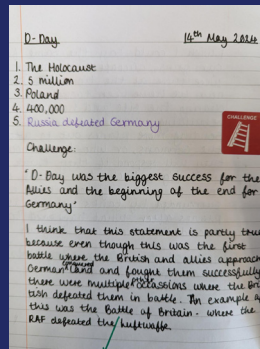 D-Day 14th May 2024
1. The Holocaust
2. 5 million
3. Poland
4. 400,000
5. Russia defeated Germany
CHALLENGE
Challenge:
"D-Day was the biggest success for the
Allies and the beginning of the end for
Germany"
I think that this statement is partly true
because even though this was the first
battle where the British and allies approach
German conquered land and fought them successfully
there were multiple occassions where the Bri-
tish defeated them in battle. An example of
this was the Battle of Britain. Where the
RAF defeated the luftwaffe.